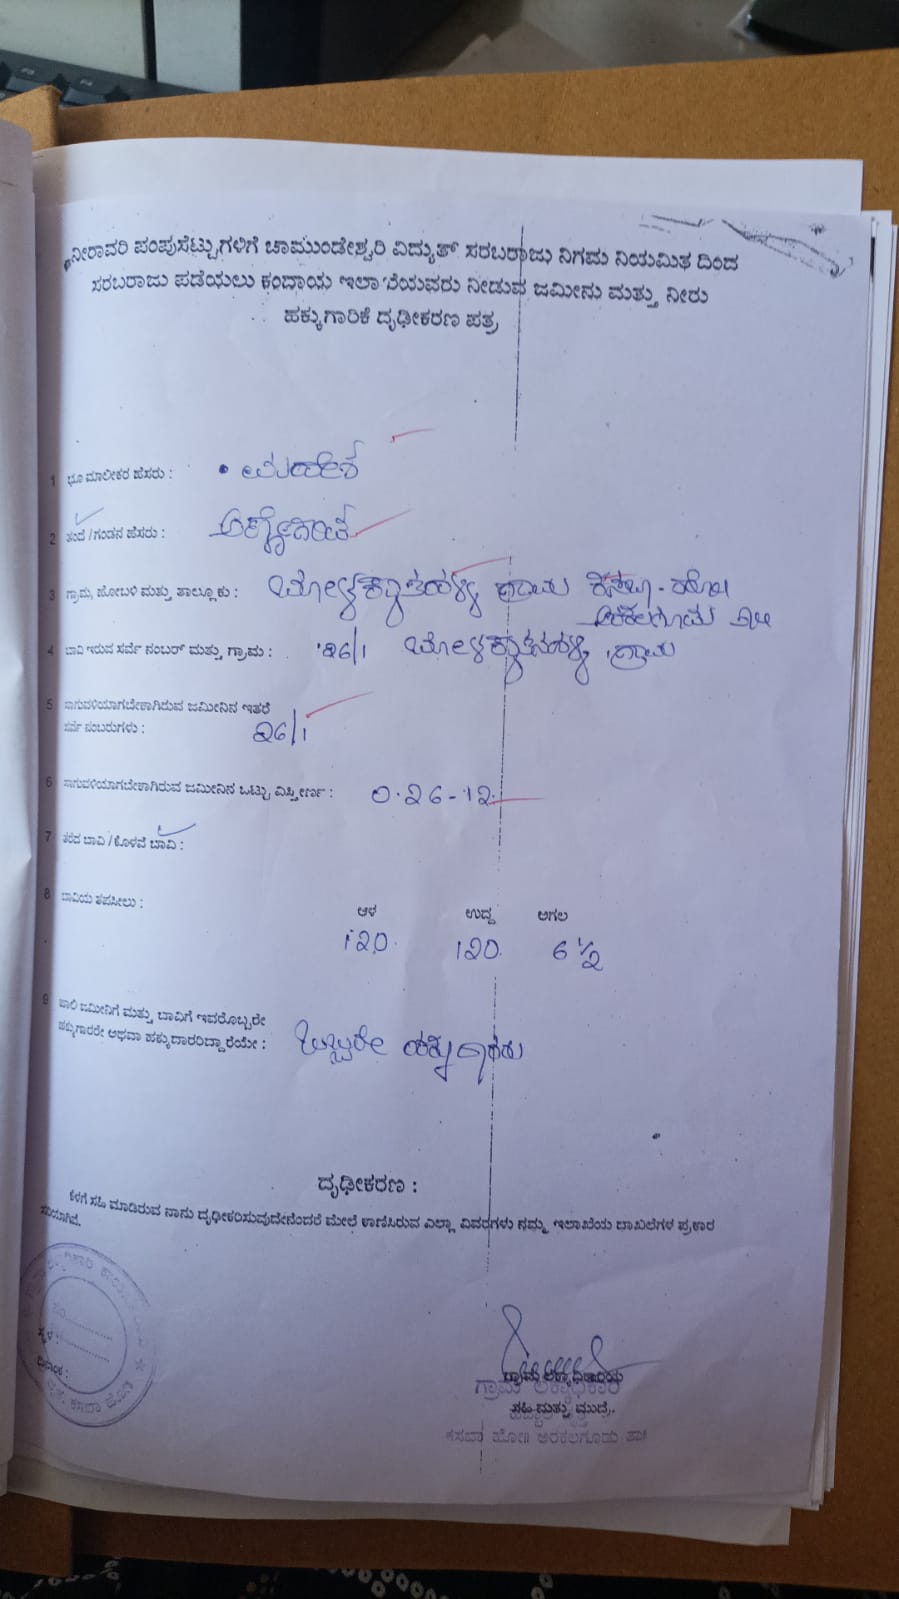 ನೀರಾವರಿ ಪಂಪುಸೆಟ್ಟುಗಳಿಗೆ ಚಾಮುಂಡೇಶ್ವರಿ ವಿದ್ಯುತ್ ಸರಬರಾಜು ನಿಗಮ ನಿಯಮಿತ ದಿಂದ
ಸರಬರಾಜು ಪಡೆಯಲು ಕಂದಾಯ ಇಲಾಖೆಯವರು ನೀಡುವ ಜಮೀನು ಮತ್ತು ನೀರು
ಹಕ್ಕುಗಾರಿಕೆ ದೃಢೀಕರಣ ಪತ್ರ
1 ಭೂ ಮಾಲೀಕರ ಹೆಸರು : ಮಹೇಶ
2 ತಂದೆ / ಗಂಡನ ಹೆಸರು :
3 ಗ್ರಾಮ, ಹೋಬಳಿ ಮತ್ತು ತಾಲ್ಲೂಕು : ಗ್ರಾಮ ಕಸಬಾ - ಹೋ॥
ಅರಕಲಗೂಡು ತಾ॥
4 ಬಾವಿ ಇರುವ ಸರ್ವೆ ನಂಬರ್ ಮತ್ತು ಗ್ರಾಮ : 26/1 ಗ್ರಾಮ
5 ಸಾಗುವಳಿಯಾಗಬೇಕಾಗಿರುವ ಜಮೀನಿನ ಇತರೆ
ಸರ್ವೆ ನಂಬರುಗಳು : 26/1
6 ಸಾಗುವಳಿಯಾಗಬೇಕಾಗಿರುವ ಜಮೀನಿನ ಒಟ್ಟು ವಿಸ್ತೀರ್ಣ : 0.26-12
7 ತೆರೆದ ಬಾವಿ / ಕೊಳವೆ ಬಾವಿ :
8 ಬಾವಿಯ ತಪಸೀಲು :
ಆಳ ಉದ್ದ ಅಗಲ
120 120 6 1/2
9 ಖಾಲಿ ಜಮೀನಿಗೆ ಮತ್ತು ಬಾವಿಗೆ ಇವರೊಬ್ಬರೇ
ಹಕ್ಕುಗಾರರೇ ಅಥವಾ ಹಕ್ಕುದಾರರಿದ್ದಾರೆಯೇ : ಒಬ್ಬರೇ ಹಕ್ಕುದಾರರು
ದೃಢೀಕರಣ :
ಕೆಳಗೆ ಸಹಿ ಮಾಡಿರುವ ನಾನು ದೃಢೀಕರಿಸುವುದೇನೆಂದರೆ ಮೇಲೆ ಕಾಣಿಸಿರುವ ಎಲ್ಲಾ ವಿವರಗಳು ನಮ್ಮ ಇಲಾಖೆಯ ದಾಖಲೆಗಳ ಪ್ರಕಾರ
ಸರಿಯಾಗಿವೆ.
ಸ್ಥಳ :
ದಿನಾಂಕ :
ಗ್ರಾಮ ಲೆಕ್ಕಾಧಿಕಾರಿಯ
ಗ್ರಾಮ ಲೆಕ್ಕಾಧಿಕಾರಿ
ಸಹಿ ಮತ್ತು ಮುದ್ರೆ.
ಕಸಬಾ ಹೋ॥ ಅರಕಲಗೂಡು ತಾ॥